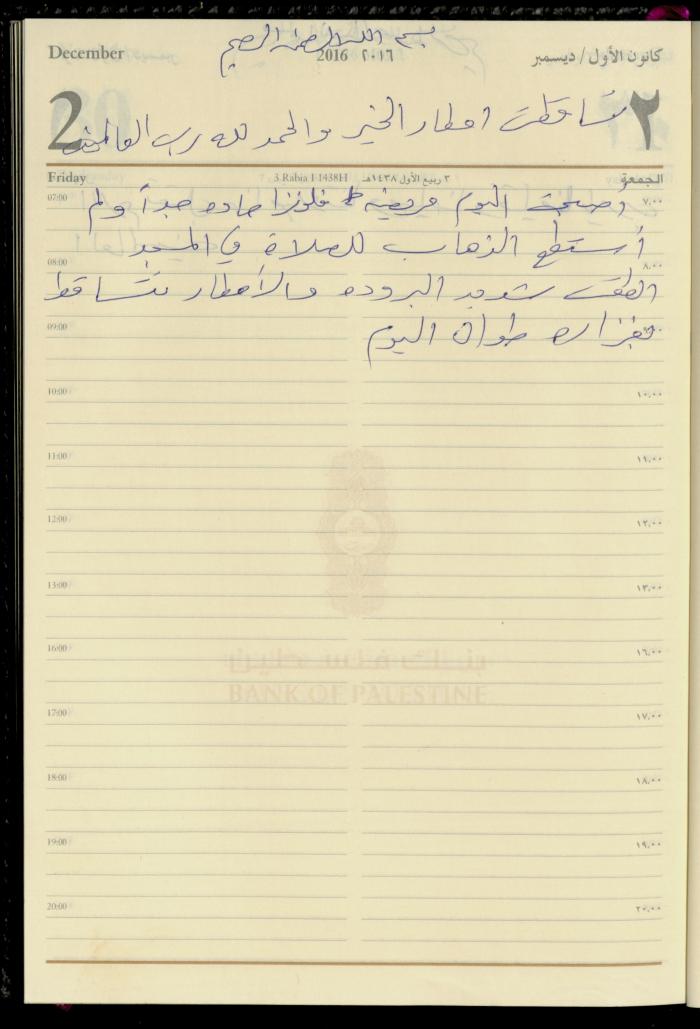 بسم الله الرحمن الرحيم
December
2016 ٢٠١٦
كانون الأول / ديسمبر
2
تساقطت امطار الخير والحمد لله رب العالمين
٢
Friday
3 Rabia I 1438H
٣ ربيع الأول ١٤٣٨هـ
الجمعة
07:00 ٧,٠٠
اصبحت اليوم مريضه فلونزا حاده جداً ولم
أستطع الذهاب للصلاة في المسجد
08:00 ٨,٠٠
الطقس شديد البروده والأمطار تتساقط
09:00 ٩,٠٠
بغزاره طوال اليوم
10:00 ١٠,٠٠
11:00 ١١,٠٠
12:00 ١٢,٠٠
13:00 ١٣,٠٠
16:00 ١٦,٠٠
بنك فلسطين
BANK OF PALESTINE
17:00 ١٧,٠٠
18:00 ١٨,٠٠
19:00 ١٩,٠٠
20:00 ٢٠,٠٠